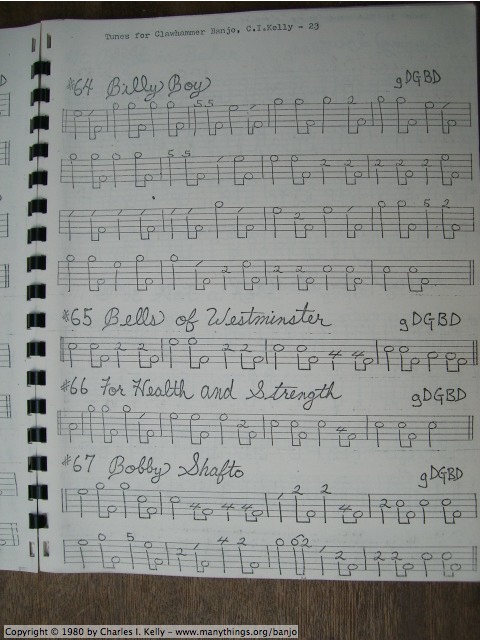 Tunes for Clawhammer Banjo, C.I.Kelly - 23
#64 Billy Boy gDGBD
#65 Bells of Westminster gDGBD
#66 For Health and Strength gDGBD
#67 Bobby Shafto gDGBD
Copyright © 1980 by Charles I. Kelly - www.manythings.org/banjo